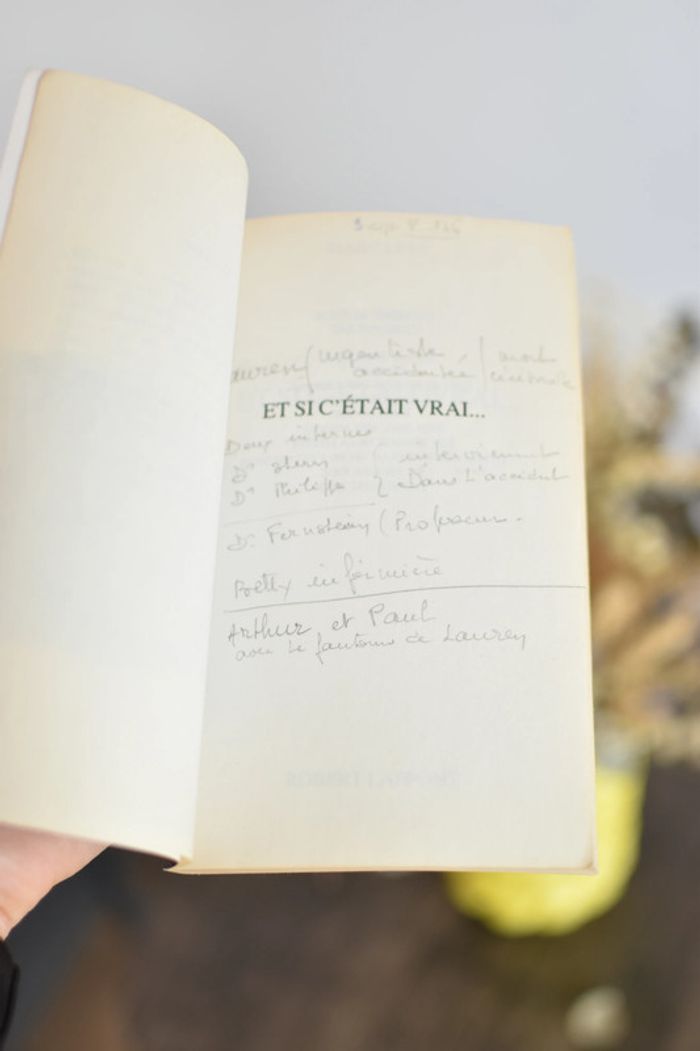 Lauren / urgentiste / mort
accidentée / cérébrale
ET SI C'ÉTAIT VRAI...
Deux internes
Dr Stern / interviennent
Dr Philipp Dans l'accident
Dr Fernstein (Professeur.
Betty infirmière
Arthur et Paul
avec le fantome de Lauren